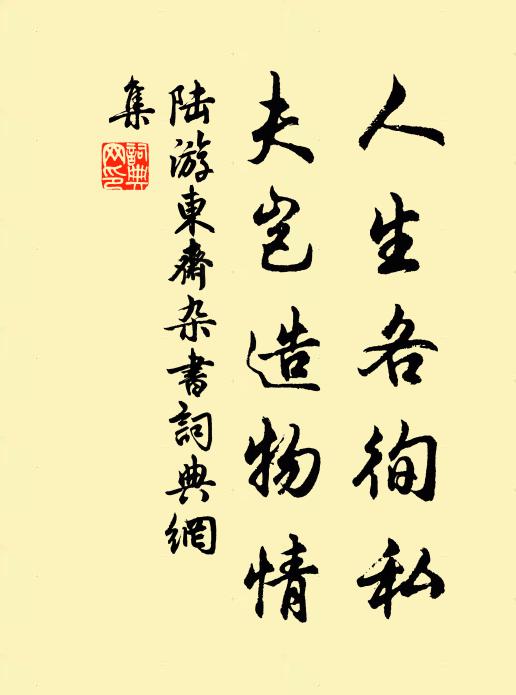 人生各徇私
夫岂造物情
陆游東齋杂書詞典網
集
詞典
網印